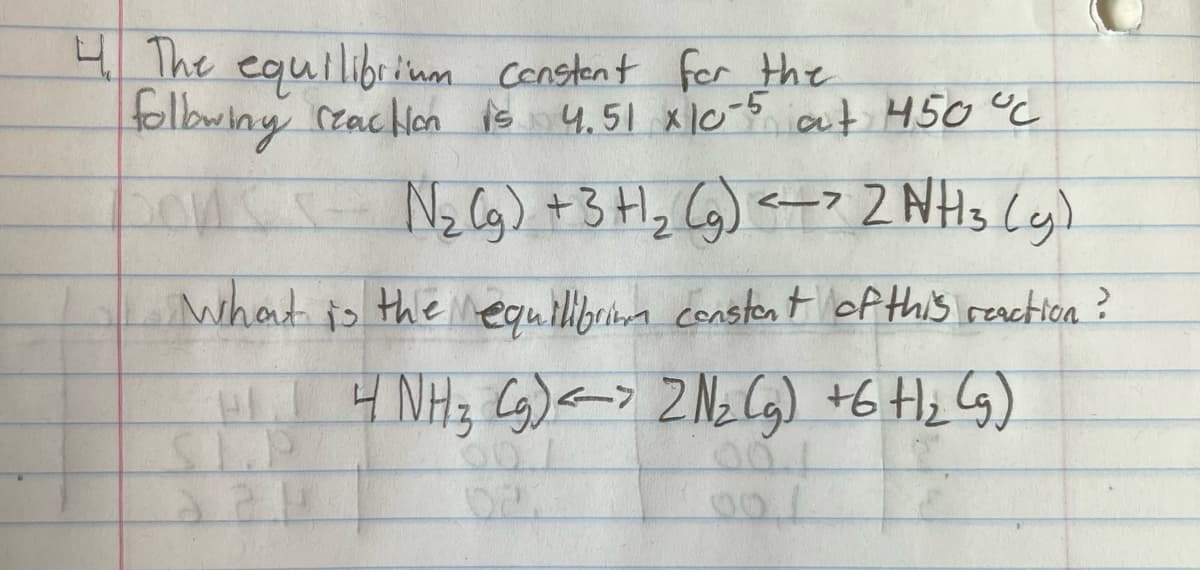 4. The equilibrium constant for the
following reaction is 4.51 x10⁻⁵ at 450 °C
N₂ (g) + 3 H₂ (g) <-> 2 NH₃ (g)
What is the equilibrium constant of this reaction?
4 NH₃ (g) <-> 2 N₂ (g) + 6 H₂ (g)